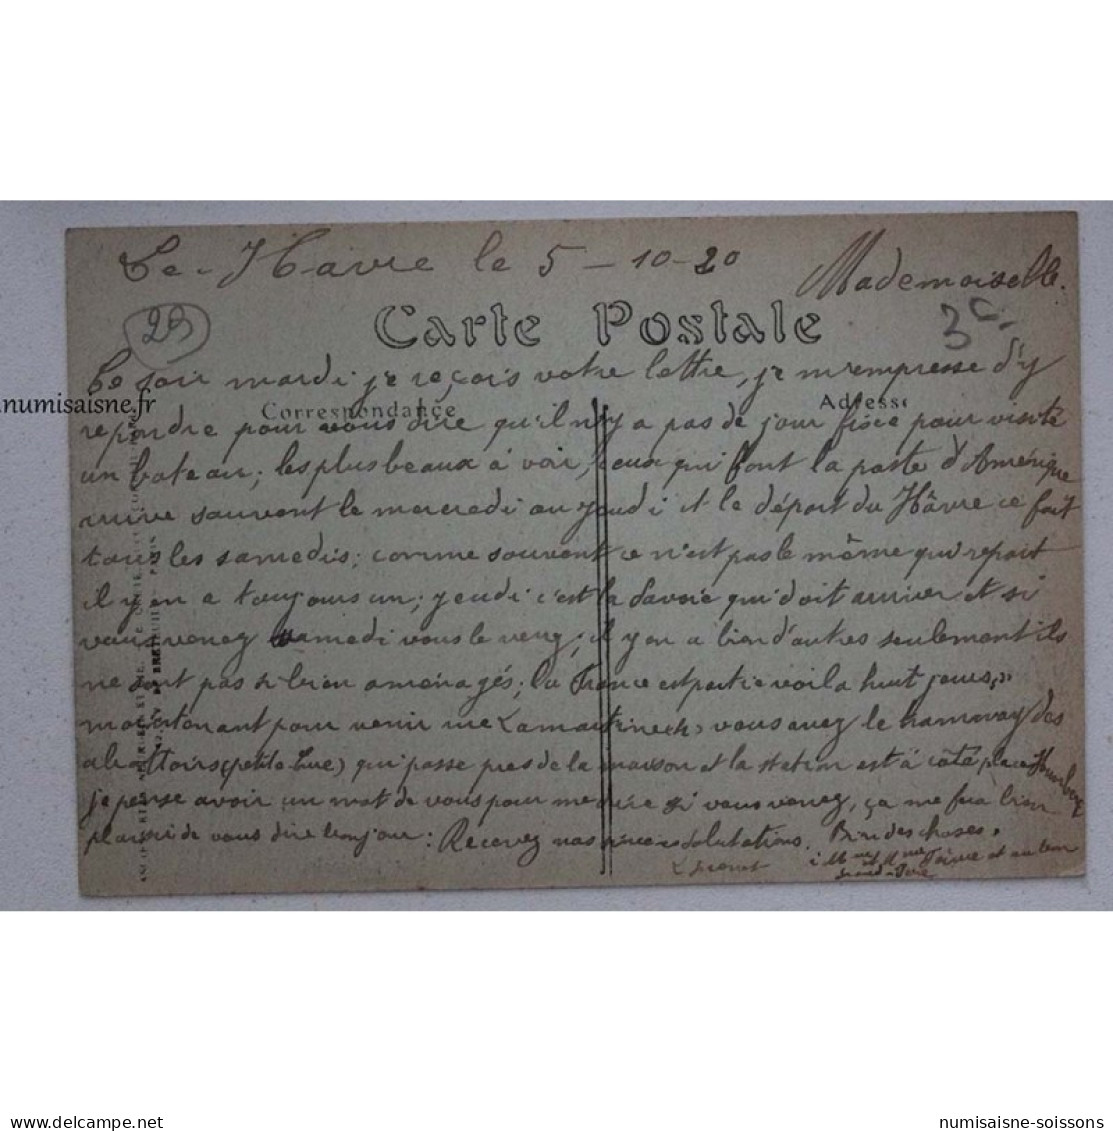 Le-Havre le 5-10-20
Mademoiselle.
29
3€
Carte Postale
Ce soir mardi je reçois votre lettre, je m'empresse d'y
numisaisne.fr
Correspondance
Adresse
repondre pour vous dire qu'il n'y a pas de jour fixée pour visité
un bateau; les plus beaux à voir, ceux qui font la poste d'Amérique
arrive souvent le mercredi au jeudi et le départ du Hâvre ce fait
tous les samedis; comme souvent ce n'est pas le même qui repart
il y en a toujours un; jeudi c'est la Savoie qui doit arriver et si
vous venez samedi vous le verez; il y en a bien d'autres seulement ils
ne sont pas si bien aménagés; la France est partie voila huit jours,
maintenant pour venir rue Lamartine vous avez le tramway des
abattoirs (petite rue) qui passe pres de la maison et la station est à côté place Humbert
je pense avoir un mot de vous pour me dire si vous venez, ça me fera bien
plaisir de vous dire bonjour: Recevez nos sincères salutations. Bien des choses,
à Mme et Mme et au bon
grand-Père
delcampe.net
numisaisne-soissons